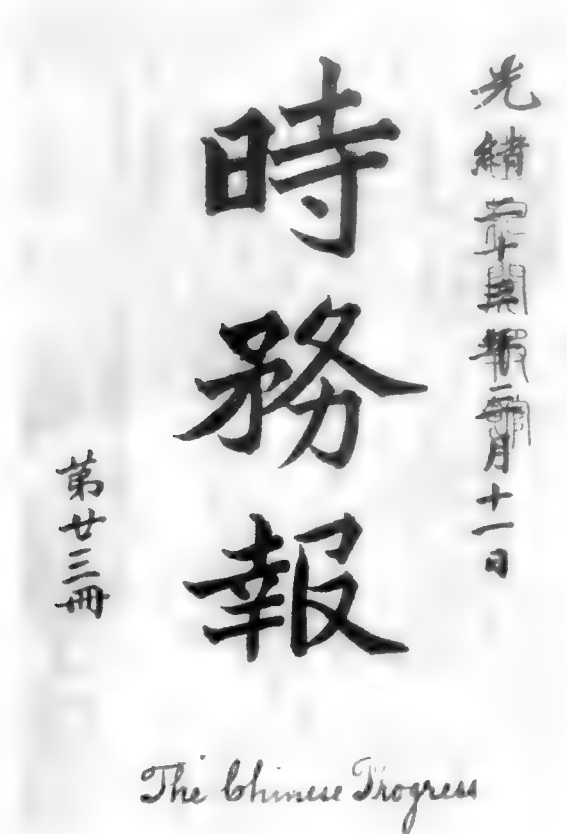 光緒二十三年三月十一日
時務報
第廿三冊
The Chinese Progress